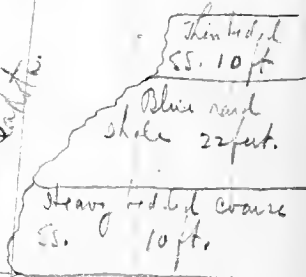 Thin bedded
SS. 10 ft
Blue sand
shale 22 feet.
Heavy bedded coarse
SS. 10 ft.